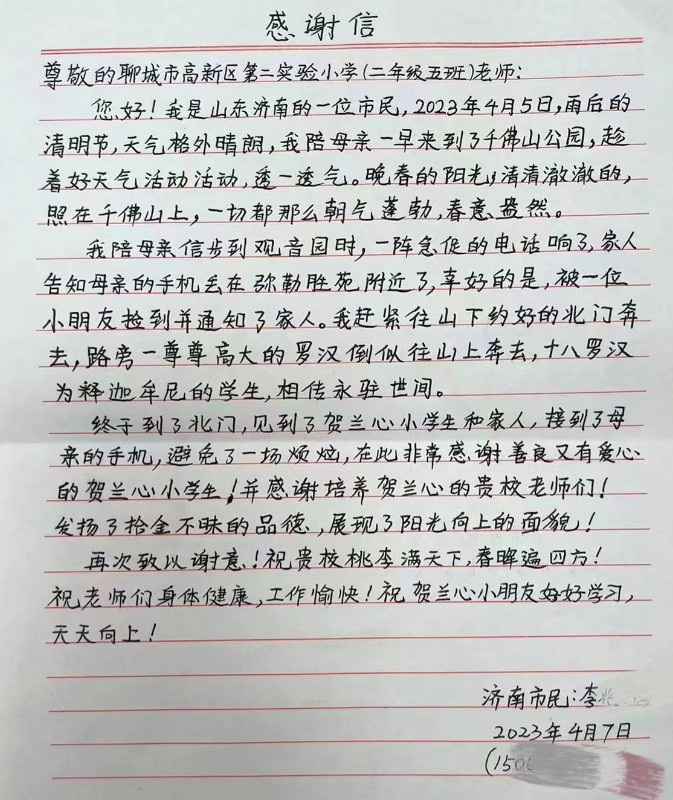 感谢信
尊敬的聊城市高新区第二实验小学(二年级五班)老师:
您好!我是山东济南的一位市民,2023年4月5日,雨后的
清明节,天气格外晴朗,我陪母亲一早来到了千佛山公园,趁
着好天气活动活动,透一透气。晚春的阳光,清清澈澈的,
照在千佛山上,一切都那么朝气蓬勃,春意盎然。
我陪母亲信步到观音园时,一阵急促的电话响了,家人
告知母亲的手机丢在弥勒胜苑附近了,幸好的是,被一位
小朋友捡到并通知了家人。我赶紧往山下约好的北门奔
去,路旁一尊尊高大的罗汉倒似往山上奔去,十八罗汉
为释迦牟尼的学生,相传永驻世间。
终于到了北门,见到了贺兰心小学生和家人,接到了母
亲的手机,避免了一场烦恼,在此非常感谢善良又有爱心
的贺兰心小学生!并感谢培养贺兰心的贵校老师们!
发扬了拾金不昧的品德,展现了阳光向上的面貌!
再次致以谢意!祝贵校桃李满天下,春晖遍四方!
祝老师们身体健康,工作愉快!祝贺兰心小朋友好好学习,
天天向上!
济南市民:李
2023年4月7日
(150